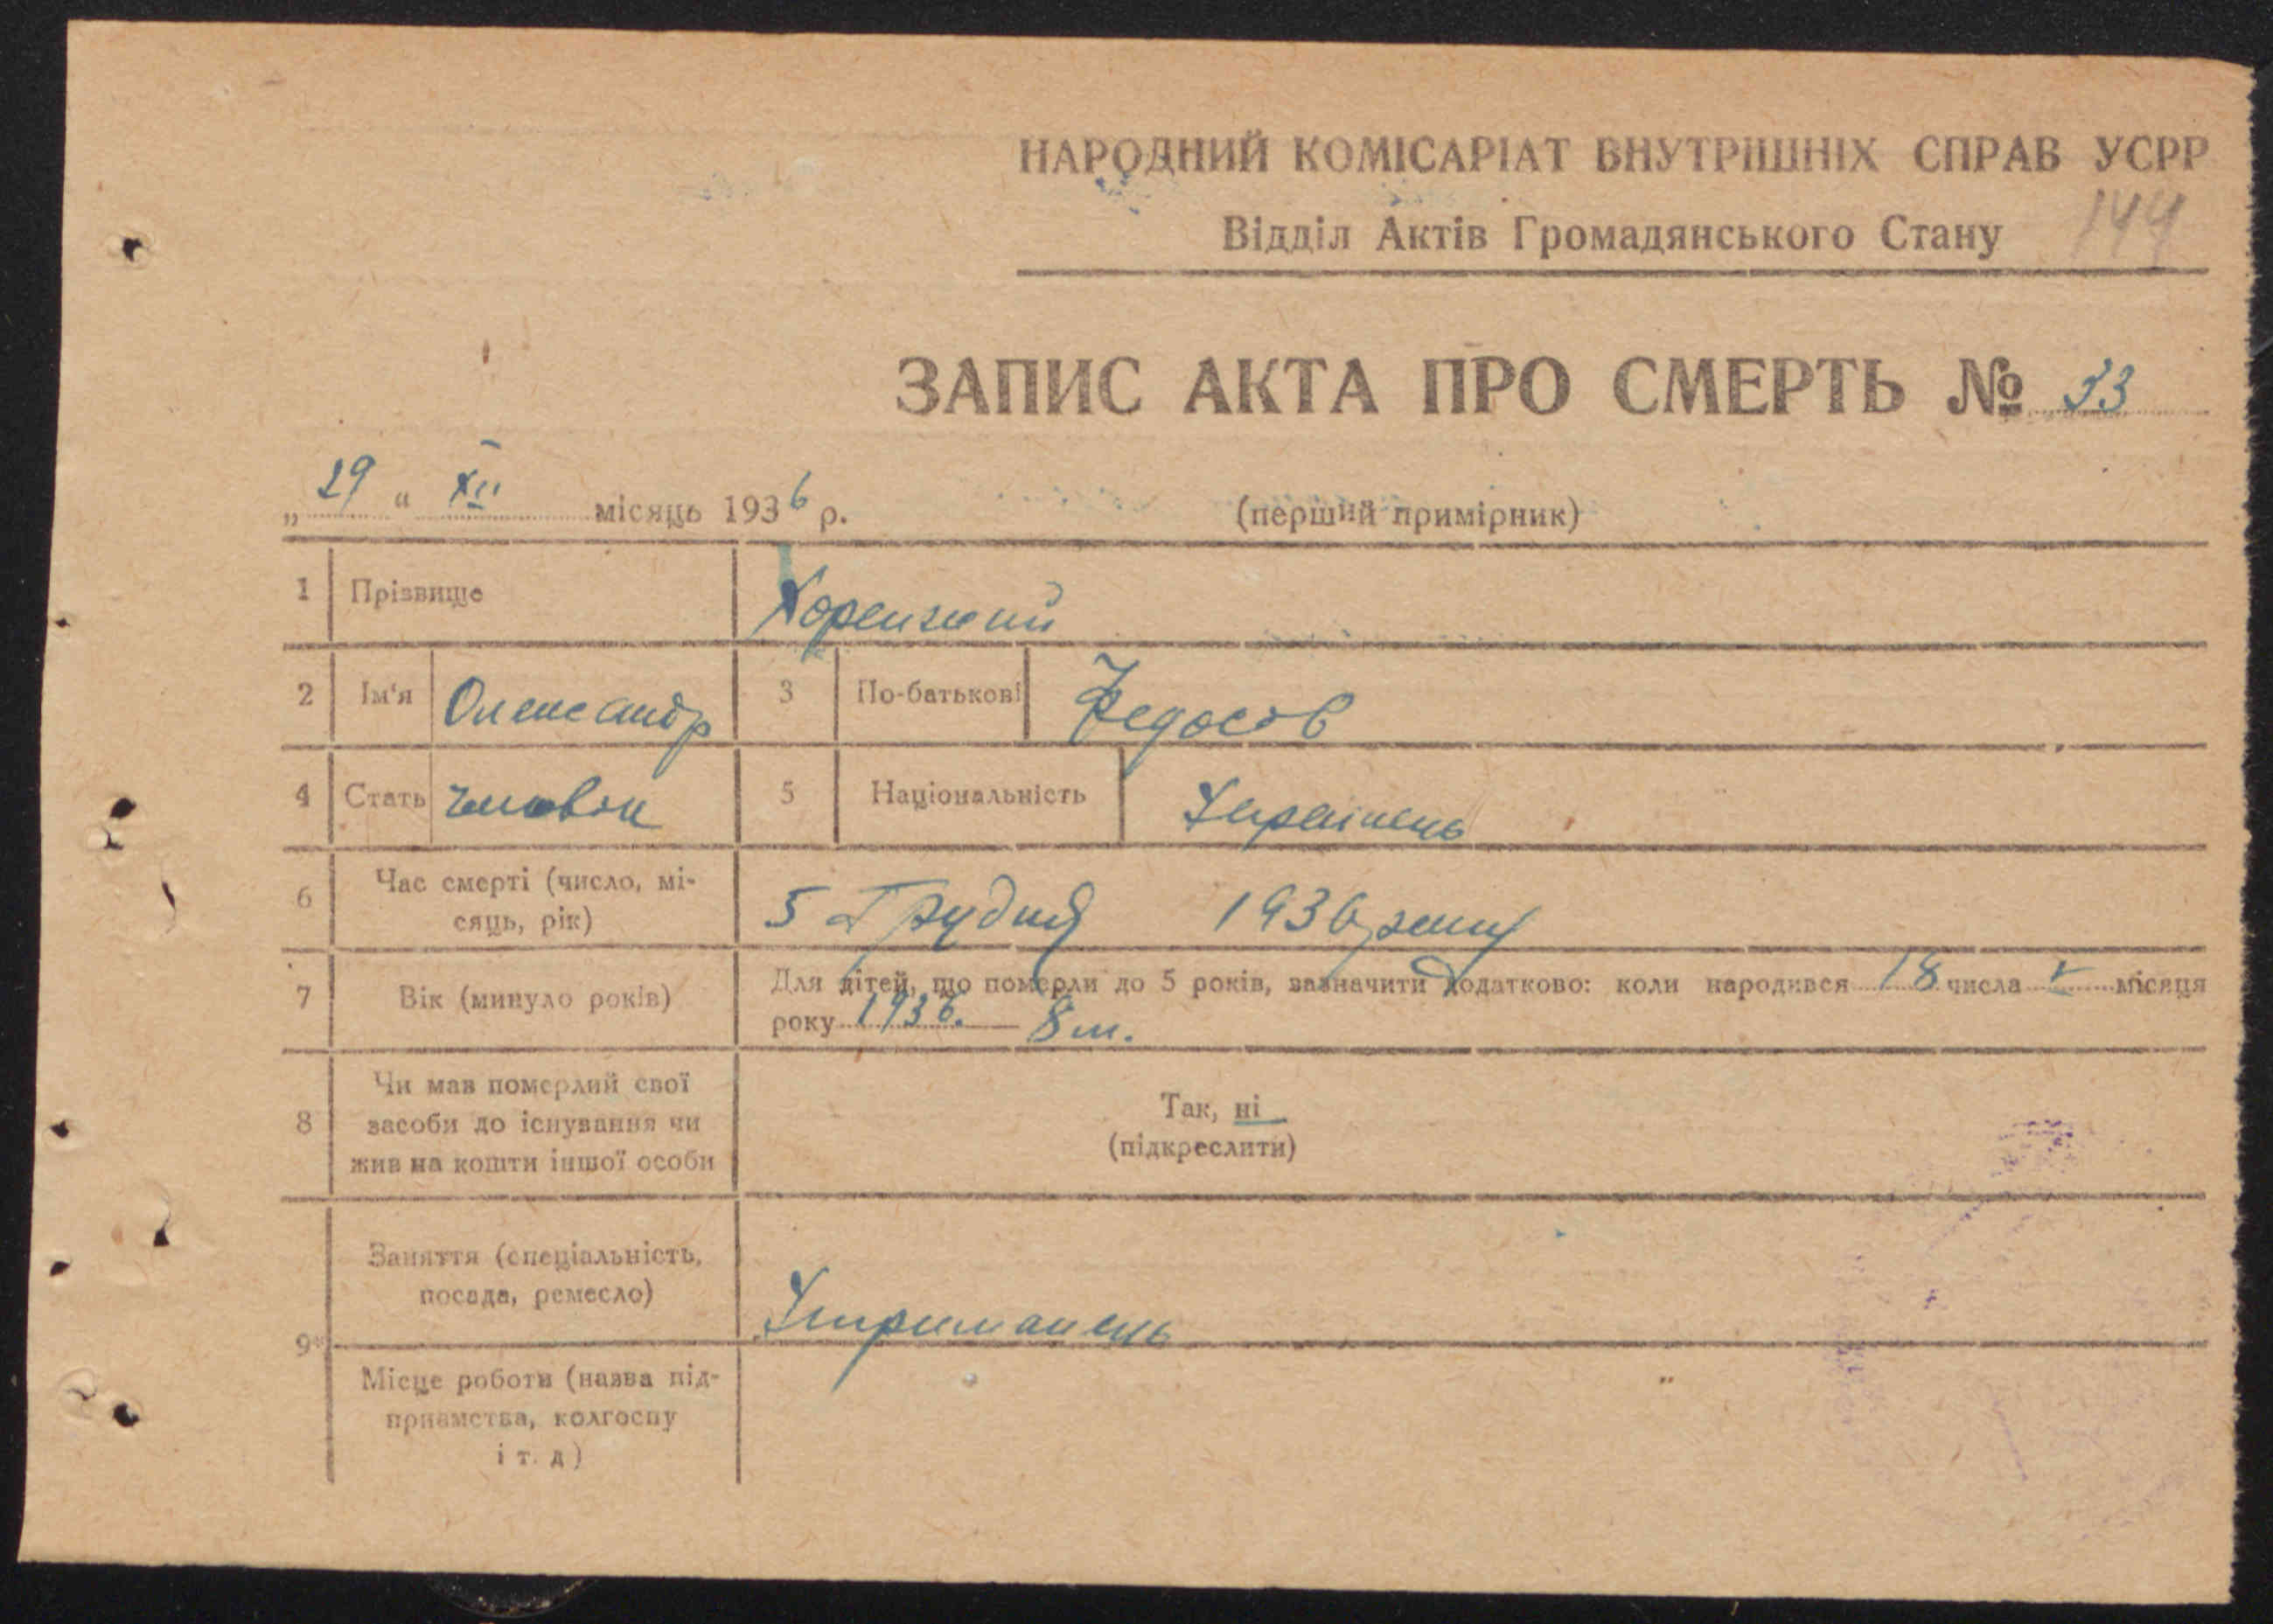 НАРОДНИЙ КОМІСАРІАТ ВНУТРІШНІХ СПРАВ УСРР
Відділ Актів Громадянського Стану 144
ЗАПИС АКТА ПРО СМЕРТЬ № 33
„ 29 “ XII місяць 1936 р. (перший примірник)
1 Прізвище
2 Ім'я Олександр 3 По-батькові Федосів
4 Стать чоловік 5 Національність Українець
6 Час смерті (число, мі-
сяць, рік) 5 Грудня 1936 року
7 Вік (минуло років) Для дітей, що померли до 5 років, зазначити додатково: коли народився 18 числа V місяця
року 1936. — 8 м.
8 Чи мав померлий свої
засоби до існування чи
жив на кошти іншої особи
Так, ні
(підкреслити)
9 Заняття (спеціальність,
посада, ремесло) Утриманець
Місце роботи (назва під-
приємства, колгоспу
і т. д)